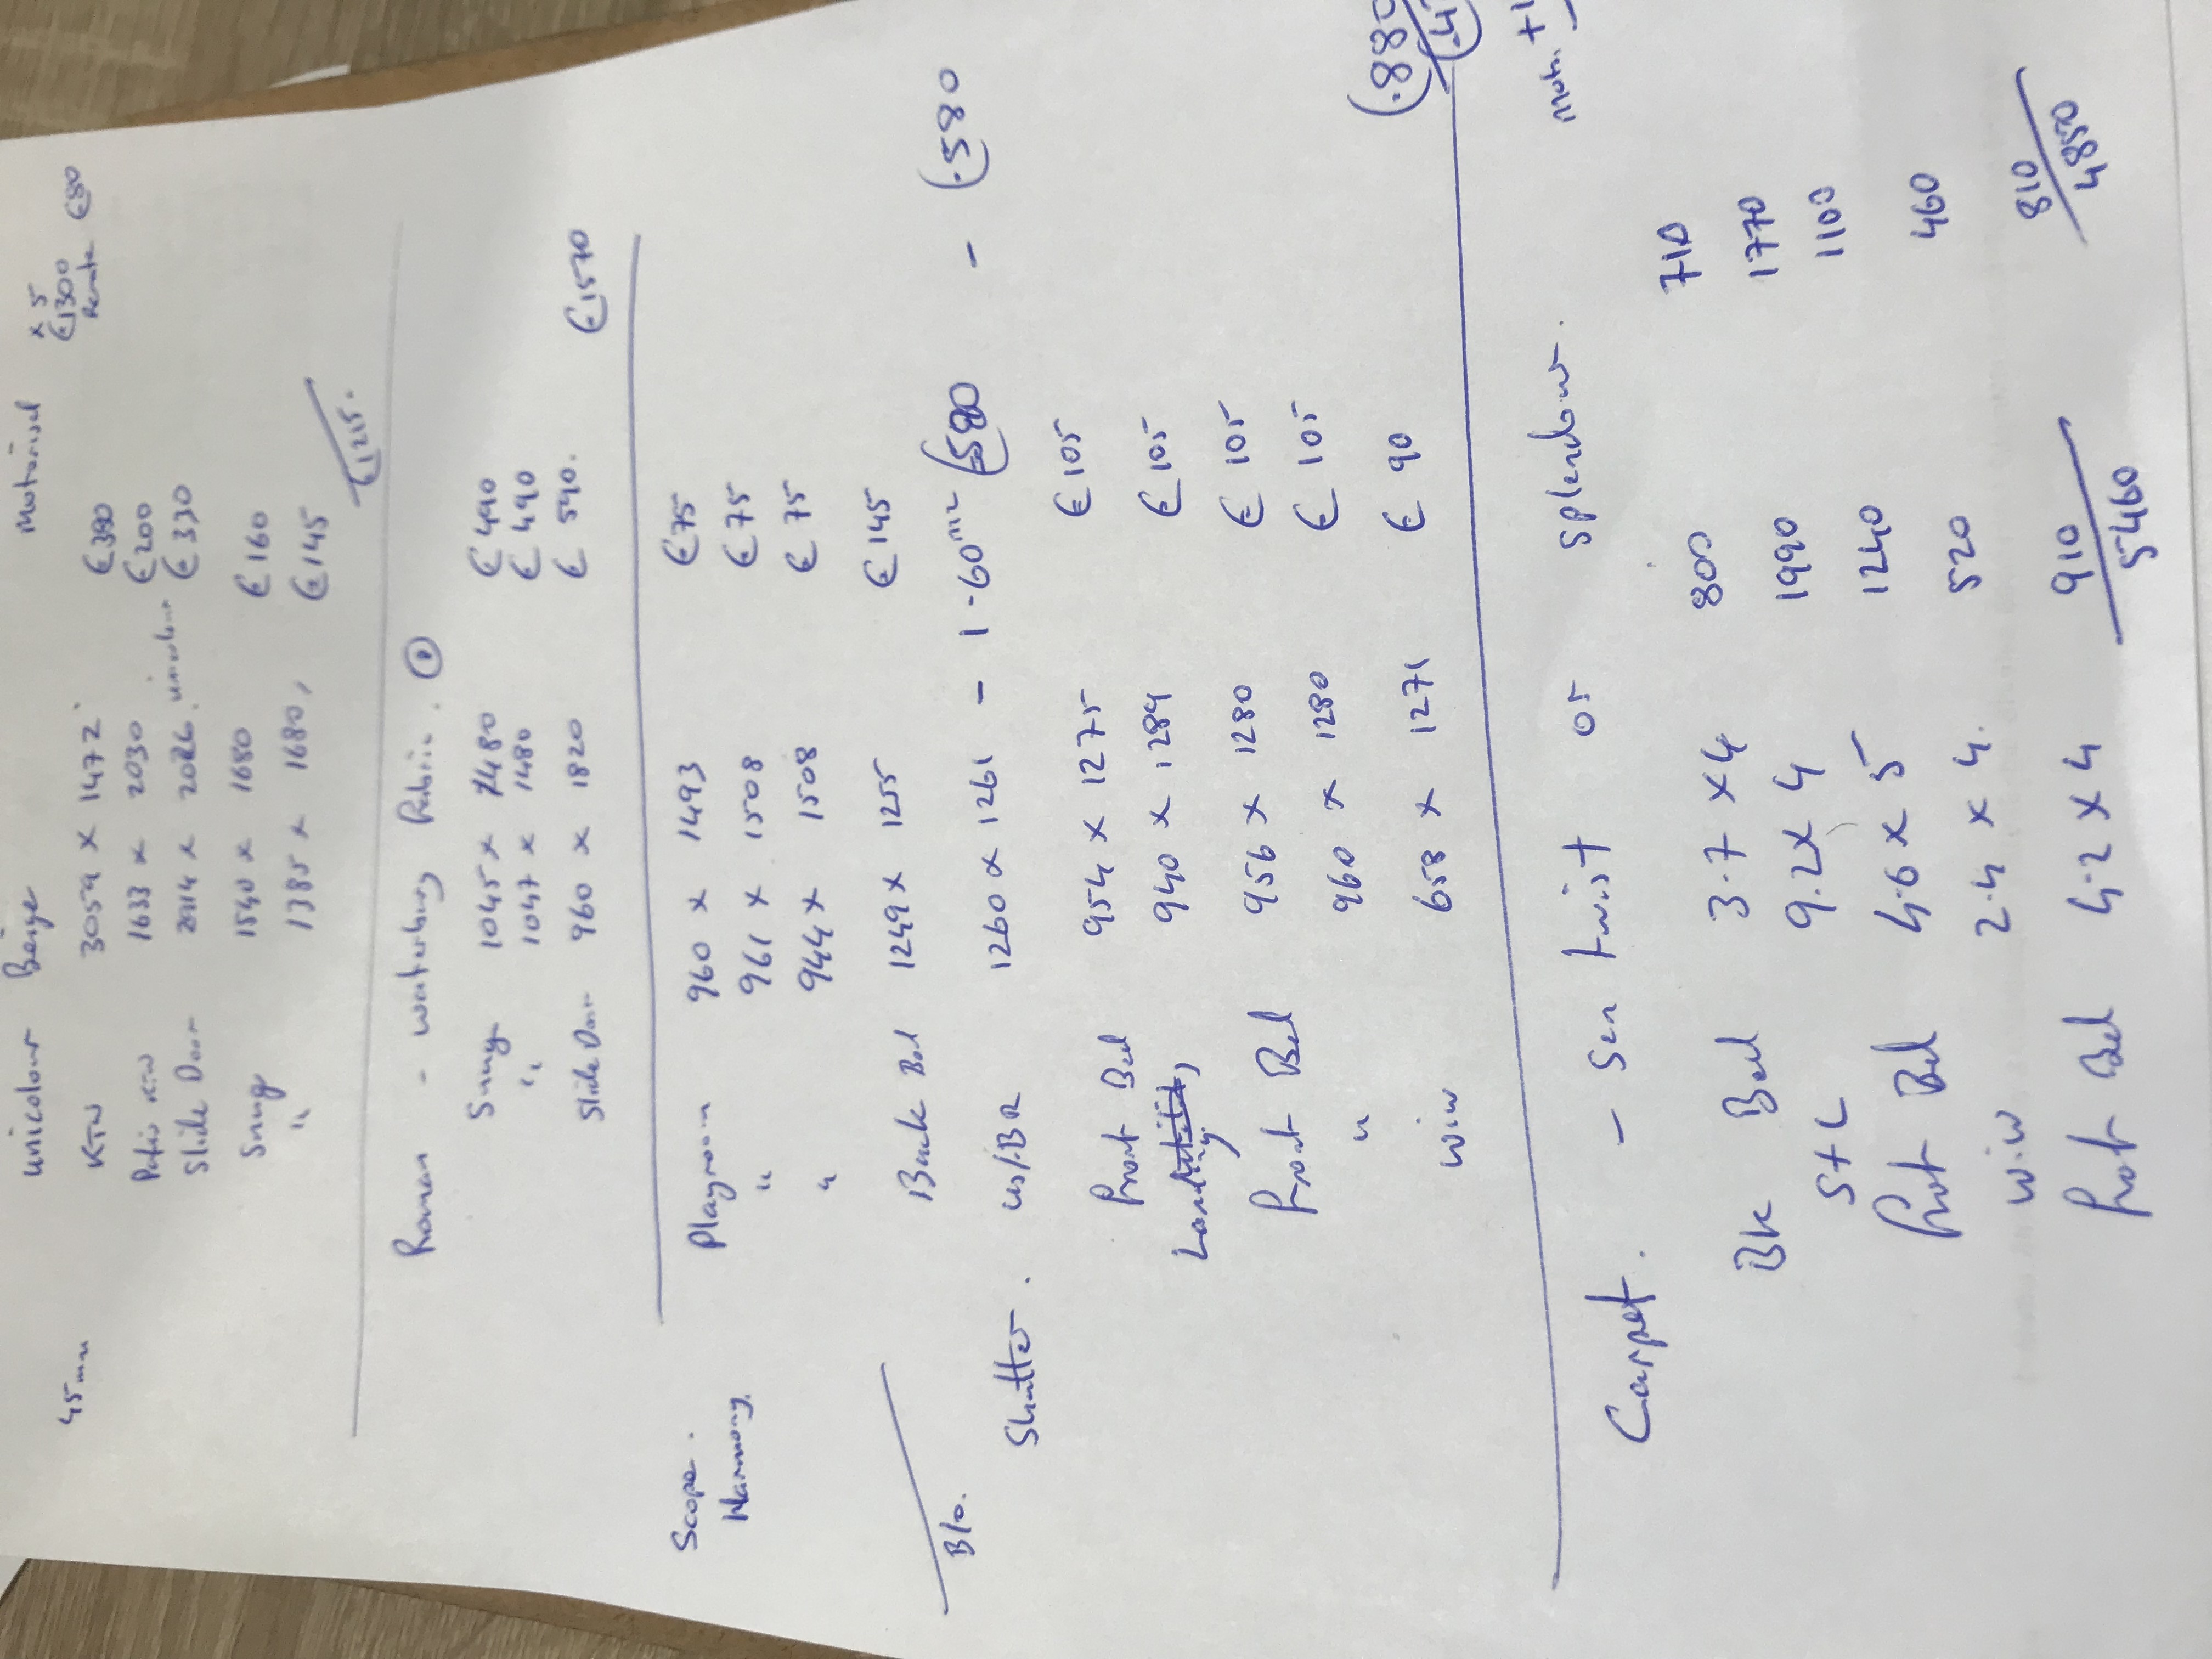 unicolour Beige Motorised x 5
€1300
Remote €80
45mm
KTN 3059 x 1472 €380
Patio KTN 1633 x 2030 €200
Slide Door 2114 x 2026 €330
Snug 1540 x 1680 €160
" 1385 x 1680 €145
€1215.
Roman - waterbury
Snug 1045 x 1480 €490
" 1047 x 1480 €490
Slide Door 960 x 1820 €590.
€1570
Scope. Playroom 960 x 1493 €75
Harmony. " 961 x 1508 €75
" 944 x 1508 €75
B/o. Back Bed 1249 x 1255 €145
Shutter. 1260 x 1261 - 1.60m² €580 - €580
Front Bed 954 x 1275 €105
Landing 940 x 1284 €105
Front Bed 956 x 1280 €105
" 960 x 1280 €105
wiw 658 x 1271 €90
880
Carpet. - Sen twist or splendour.
Bk Bed 3.7 x 4 800 710
S+L 9.2 x 4 1990 1770
Front Bed 4.6 x 5 1240 1100
wiw 2.4 x 4. 520 460
Front Bed 4.2 x 4 910 810
5460 4850